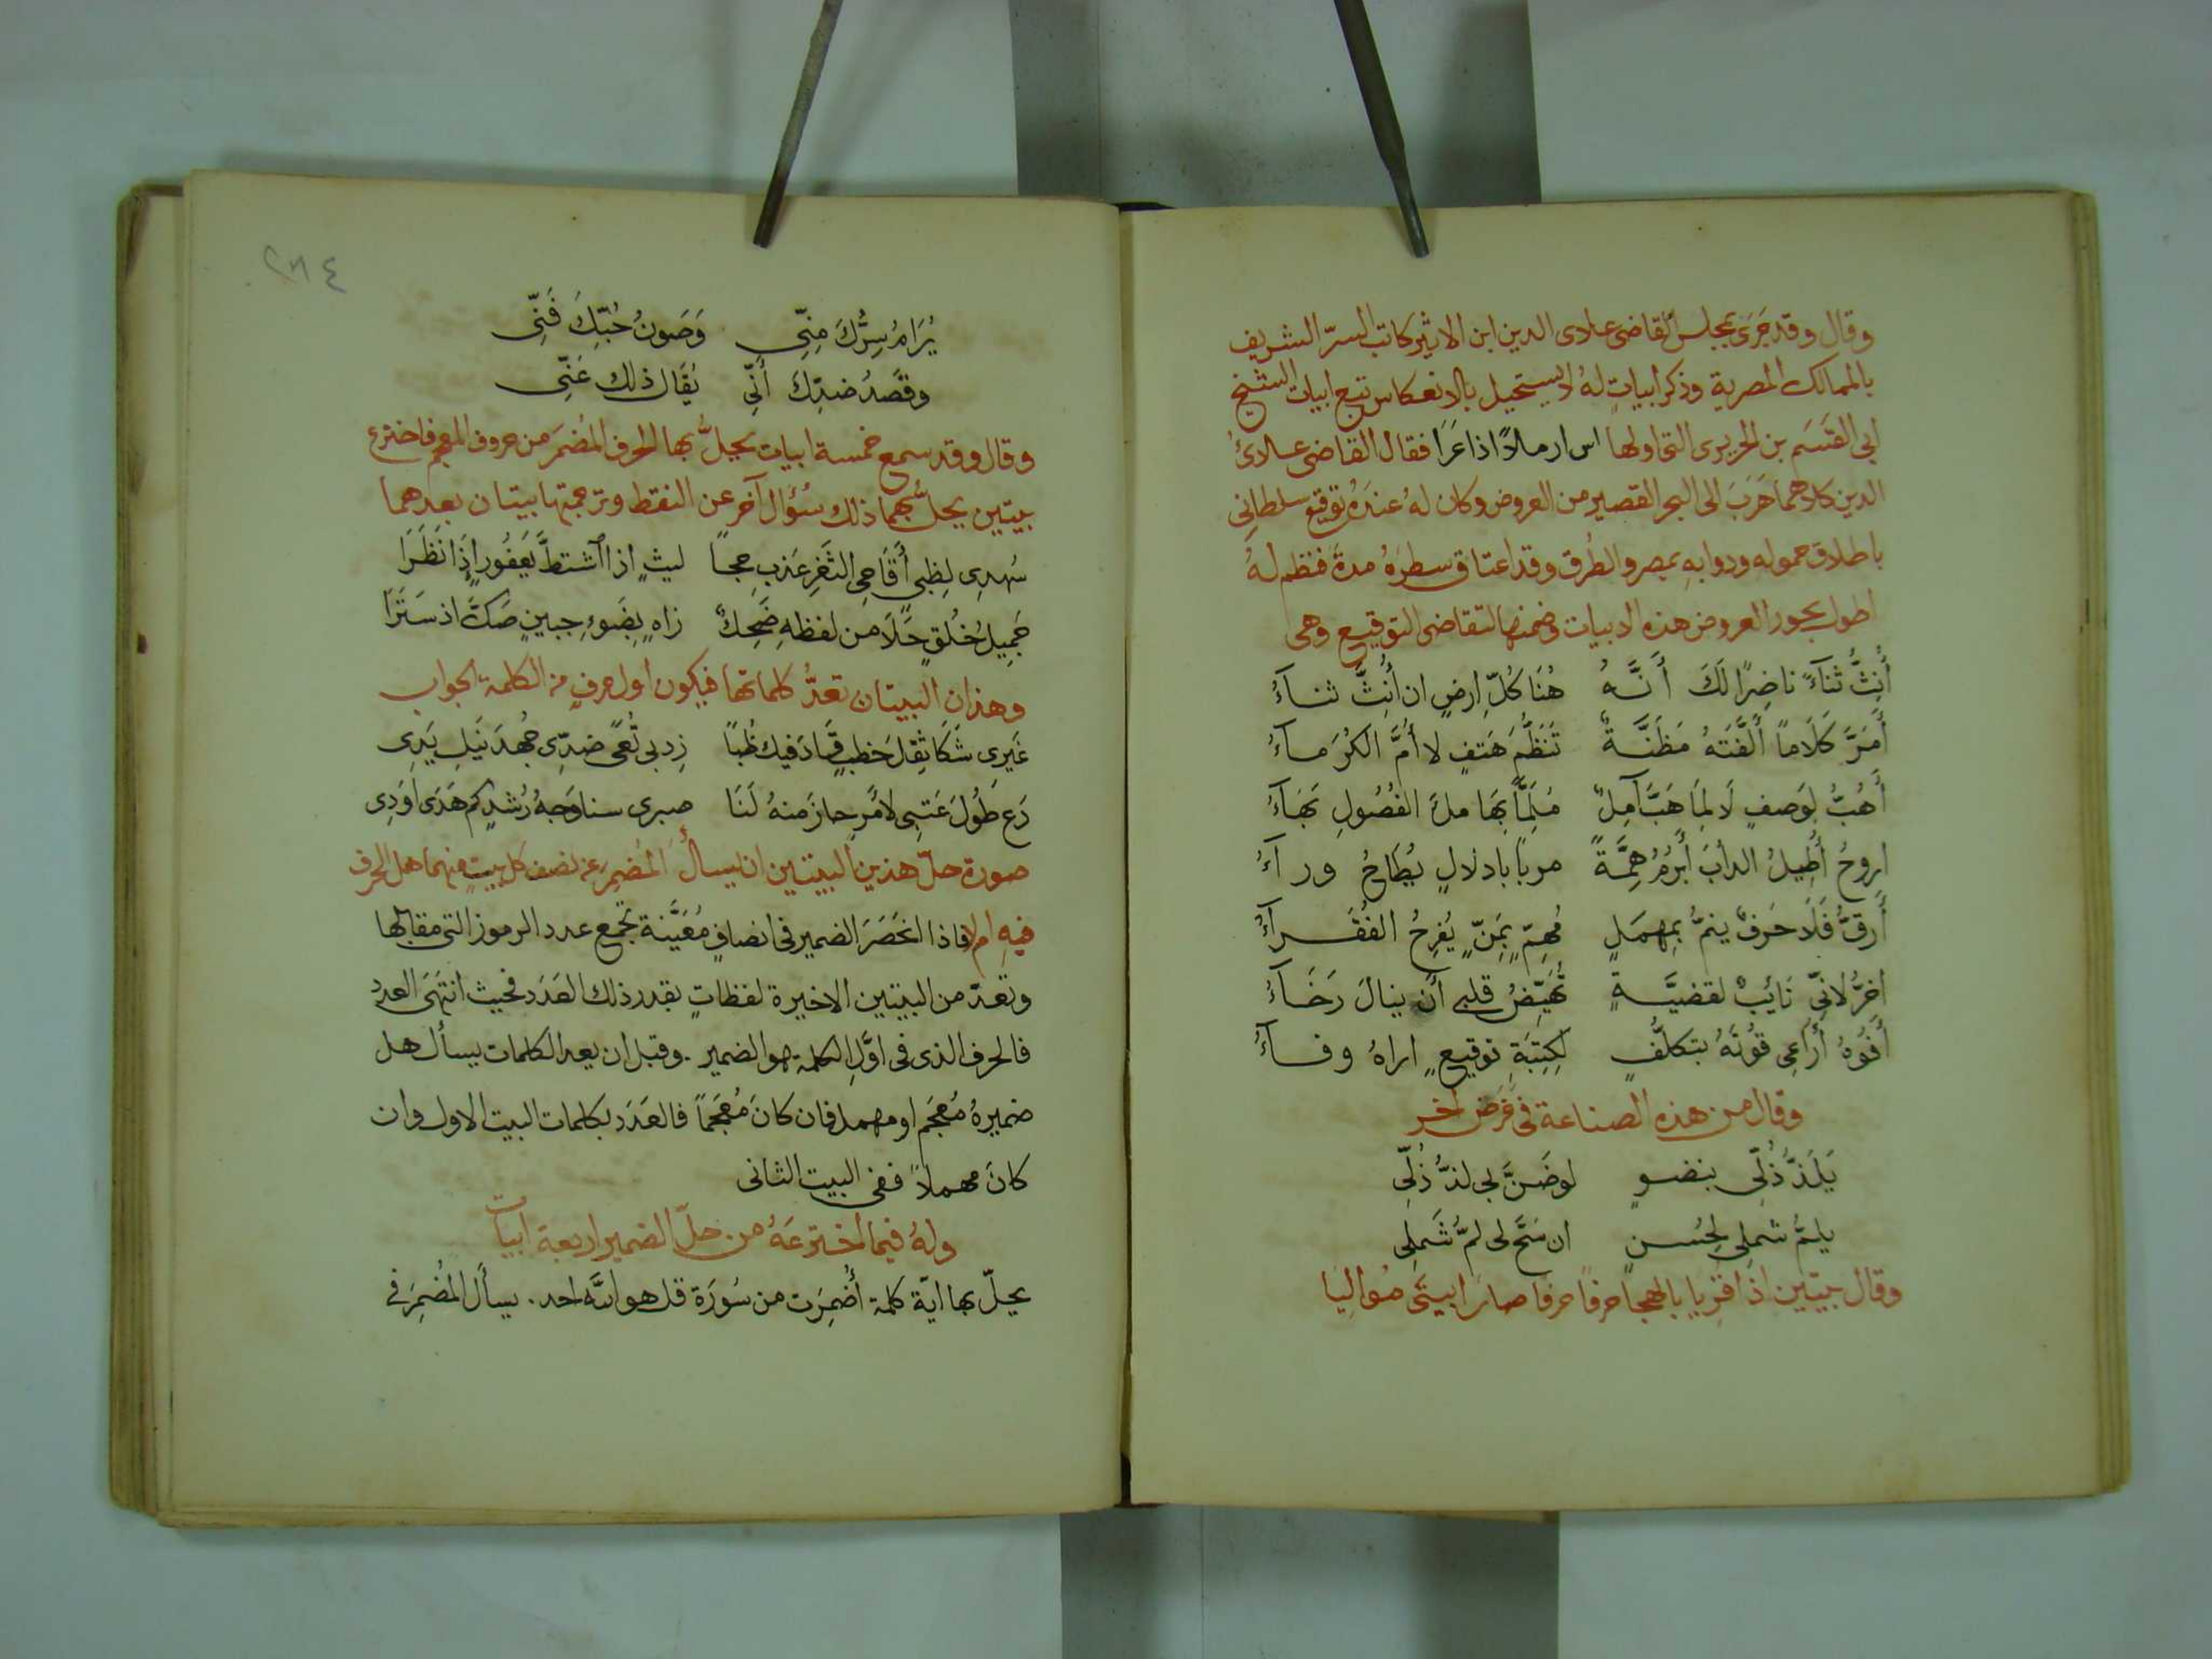 وقال وقد جَرَى بمجلس القاضى علاى الدين ابن الاثير كاتب السرّ الشريف
بالممالك المصرية وذكر ابياتٍ لهُ لا يستحيل بالانعكاس تتبع ابيات الشيخ
ابى القسَم بن الحريرى التى اولها اس ارملاً اذا عَرَا فقال القاضى علاءُ
الدين كلاهما هَرَبَ الى البحر القصير من العروض وكان لهُ عندَهُ توقيع سلطانى
باطلاق حموله ودوابهِ بمصر والطُرق وقد اعتاق سطرَهُ مدةً فنظم لهُ
اطول بحور العروض هذه الابيات وضمنها التقاضى التوقيع وهى
أُنِثُّ ثَنَآءً ناضِرًا لَكَ أَنَّهُ هُنَا كُلّ ارضٍ ان أُنِثَّ ثنآءُ
أَمَرَّ كَلَامًا أَلَّفَتهُ مَظَنَّةٌ تَنَظُّمَ هَتفٍ لا أُمَّ الكُرَمآءُ
أَهُبُّ لِوَصفٍ لَا لِمَا هَبَّ آمِلٌ مُلِمًّا بِهَا ملَّ الفُصُولِ بَهَآءُ
اروحُ أُطِيلُ الدأبَ أَبرُمُ هِمَّةً مربا بادلالٍ يُطَاحُ ورآءُ
أَرقّ فَلَا حَرفٌ ينمُّ بِمهمَلٍ مُهِمّ بِمَنّ يُفرِحُ الفُقَرآءُ
اخرُّ لانّى نَائِبٌ لقضيَّةٍ تُهَيّضُ قلبى أن ينالَ رَخَآءُ
أَفُوهُ أُرَاعِى قوُتَهُ بتكلُّفٍ لِكِتبَةِ توقيعٍ اراهُ وفآءُ
وقال من هذه الصناعة فى غَرَض آخر
يَلَذُّ ذُلّى بنضوٍ لو ضَنَّ بى لذُّ ذُلّى
يلمُّ شملى لحُسنٍ ان سَحَّ لى لمُّ شَملِى
وقال بيتين اذا قريا بالهجا حرفاً حرفا صارا بيتَى مُواليا
٢٨٤
يُرَامُ سِرُّكَ مِنِّى وَصَونُ حُبّكَِ فَنِّى
وقَصدُ ضدّكَ أَنِّى يُقَال ذلك عَنِّى
وقال وقد سمع خمسة ابيات يحلُّ بها الحرف المُضمَر من حروف المعجم فاخترع
بيتين يحلُّ بهما ذلك سُؤال آخر عن النقط وترجمتها بيتان بعدهما
سُهدِى لِظبى أَقَاحِى الثَغر عَذبِ حجاً ليثٍ اذا اشتطَّ يَعفُورٍ إذَا نَظَرَا
جَمِيلِ خُلُقٍ حَلَا من لفظهِ ضَحِكٌ زاهٍ بِضَوءِ جبينٍ صَكَّ اذ سَتَرَا
وهذان البيتان تعدُّ كلماتها فيكون اول حرفٍ من الكلمة الجواب
غَيرِى شَكَا ثِقلَ خطبٍ قَادَ فيك ظُبًا زِد بى تُعمً ضدِّى جُهدَ نَيلِ يَدِى
دَع طُولَ عَتبى لأمرٍ حازَ منهُ لَنَا صبرى سنا وَجهُ رُشدٍ كم هَدَى أَوَدِى
صورة حلّ هذين البيتين ان يسأل المُضمِر عن نصف كل بيتٍ منهما هل الحرف
فيهِ ام لا فاذا انحَصَرَ الضمير فى انصافٍ مُعَيَّنة تجمع عدد الرموز التى مقابلها
وتعدّ من البيتين الاخيرة لفظاتٍ بقدر ذلك العَدَد فحيث انتَهَى العدد
فالحرف الذى فى اوَّلِ الكلمة هو الضمير. وقبل ان يعد الكلمات يسأل هل
ضميرهُ مُعجَم او مهمل فان كانَ مُعجَماً فالعَدَد بكلمات البيت الاول وان
كانَ مهملاً ففى البيت الثانى
ولهُ فيما اخترعَهُ من حلّ الضمير اربعة ابيات
يحلّ بها ايّة كلمة أُضمِرَت من سُورَة قل هو اللّه احد. يسأل المُضمِرَ فى